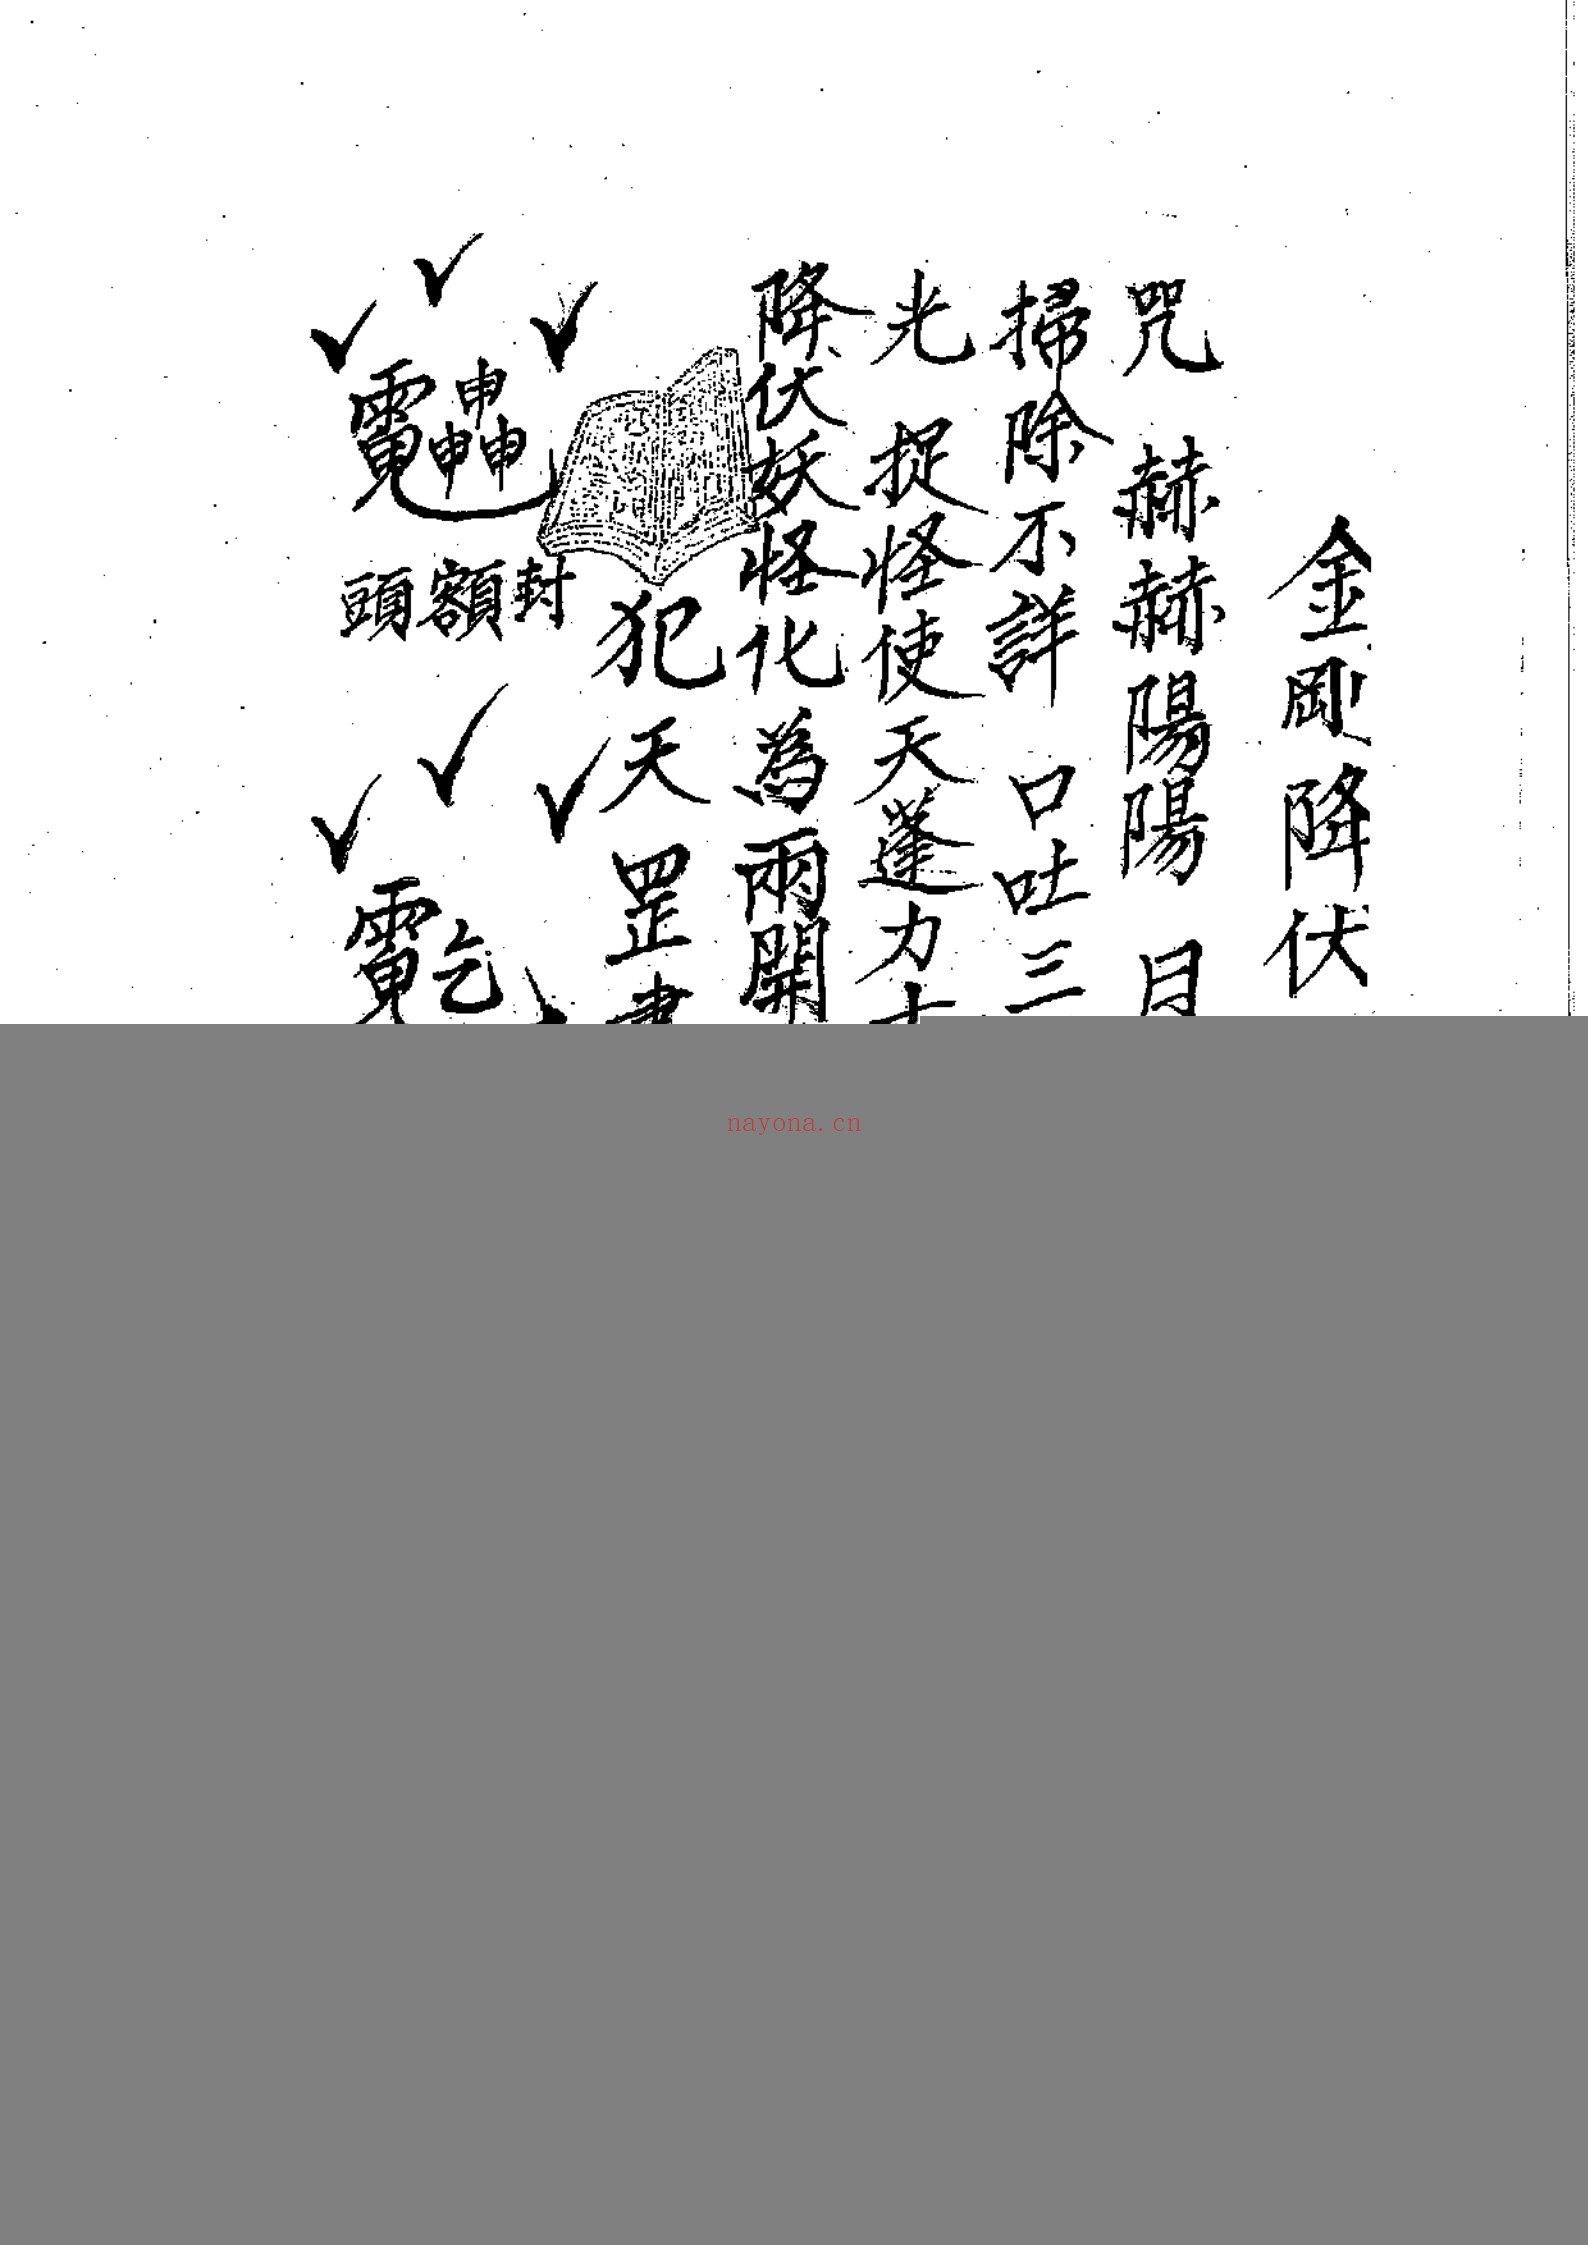 金剛降伏
咒 赫赫陽陽 日
掃除不詳 口吐三
光 捉怪使天蓬力士
降伏妖怪化為兩開
犯天罡
申申申
封額頭
乞
nayona.cn